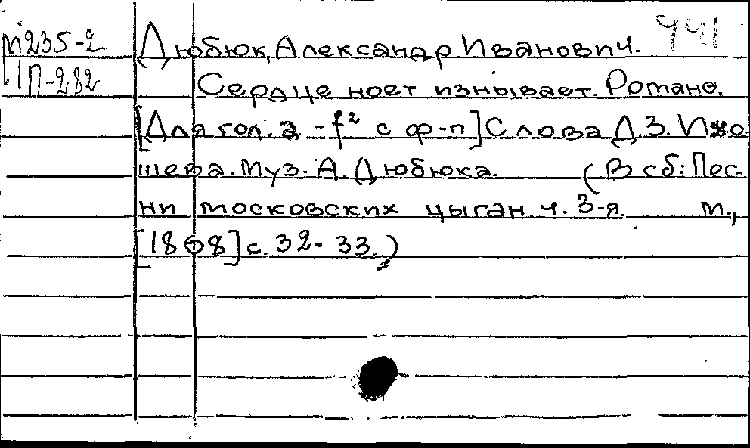 М235-2
1П-282
441
Дюбюк, Александр Иванович.
Сердце ноет изнывает. Романс.
[Для гол. a - f² с ф-п] Слова Д.З. Ихо
шева. Муз. А. Дюбюка. (В сб: Пес-
ни московских цыган. ч. 3-я. М.,
[1868] с. 32-33.)